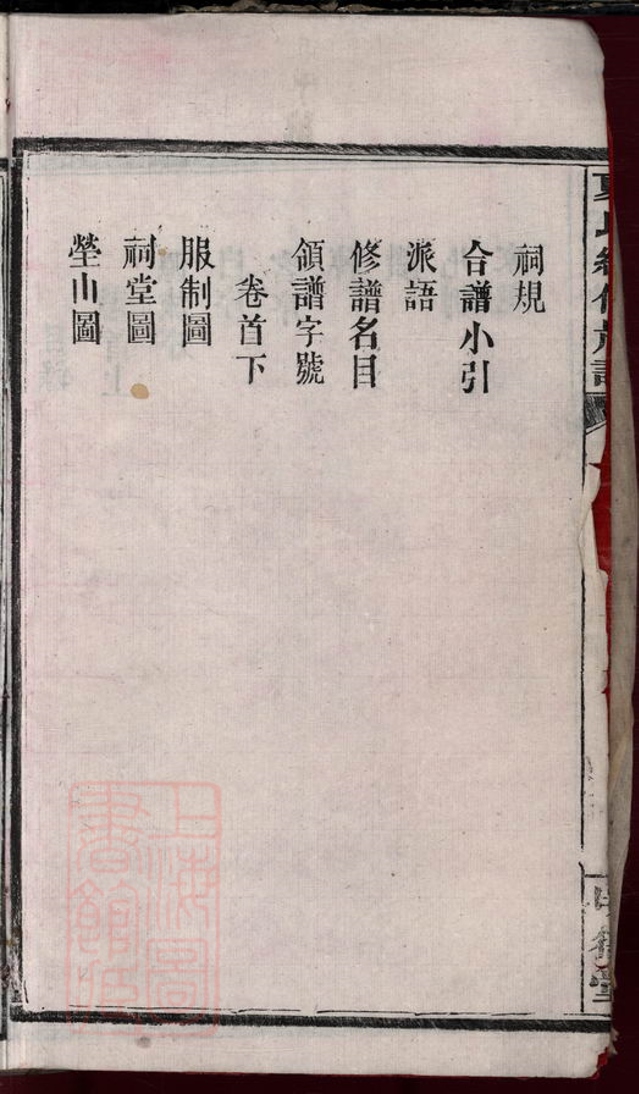 祠規
合譜小引
派語
修譜名目
領譜字號
卷首下
服制圖
祠堂圖
塋山圖
上海圖
書館藏